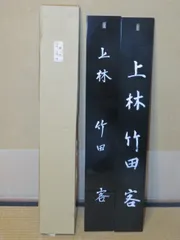 上林 竹田 客
上林 竹田 客